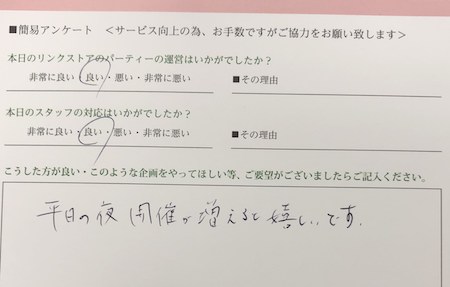 ■簡易アンケート ＜サービス向上の為、お手数ですがご協力をお願い致します＞
本日のリンクストアのパーティーの運営はいかがでしたか？
非常に良い・良い・悪い・非常に悪い ■その理由
本日のスタッフの対応はいかがでしたか？
非常に良い・良い・悪い・非常に悪い ■その理由
こうした方が良い・このような企画をやってほしい等、ご要望がございましたらご記入ください。
平日の夜開催が増えると嬉しいです。